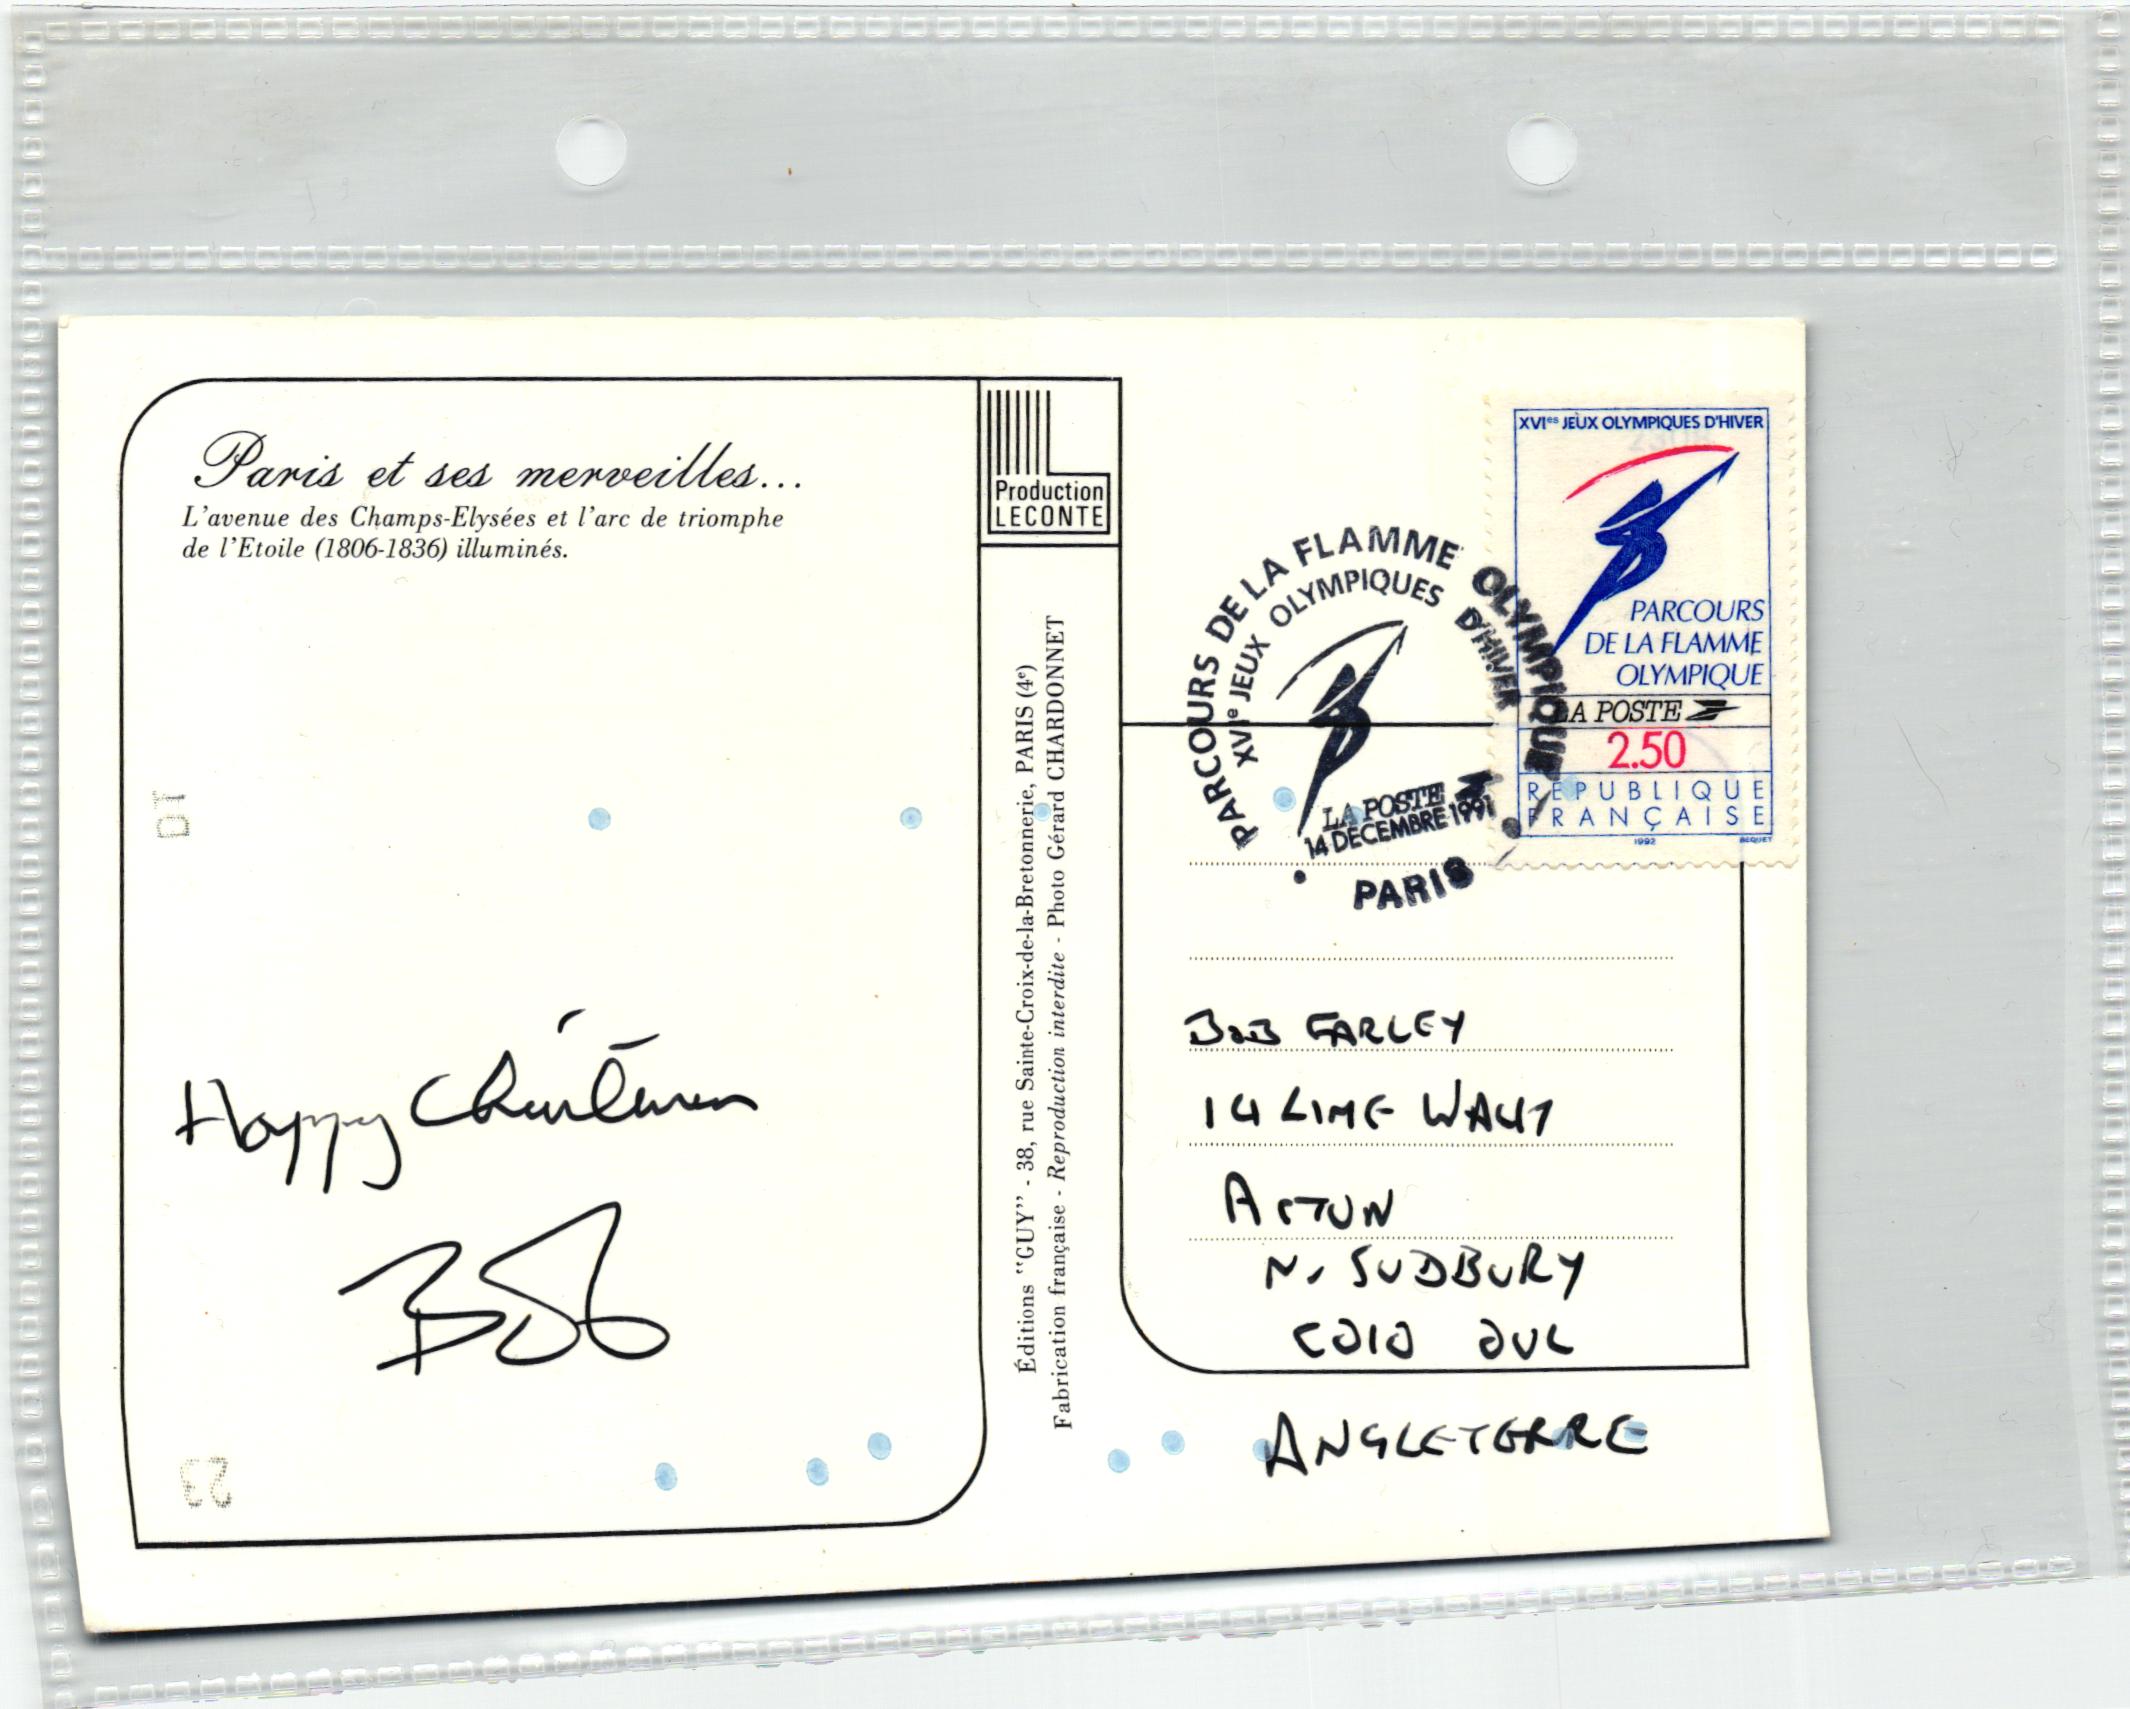 Paris et ses merveilles...
L'avenue des Champs-Elysées et l'arc de triomphe
de l'Etoile (1806-1836) illuminés.
Happy Christmas
Bob
23
Production
LECONTE
Éditions "GUY" - 38, rue Sainte-Croix-de-la-Bretonnerie, PARIS (4e)
Fabrication française - Reproduction interdite - Photo Gérard CHARDONNET
PARCOURS DE LA FLAMME OLYMPIQUE
XVIe JEUX OLYMPIQUES D'HIVER
LA POSTE
14 DECEMBRE 1991
PARIS
XVIes JEUX OLYMPIQUES D'HIVER
PARCOURS
DE LA FLAMME
OLYMPIQUE
LA POSTE
2.50
REPUBLIQUE
FRANÇAISE
1992 BEQUET
BOB FARLEY
14 LIME WALK
ACTON
N. SUDBURY
CO10 0UL
ANGLETERRE